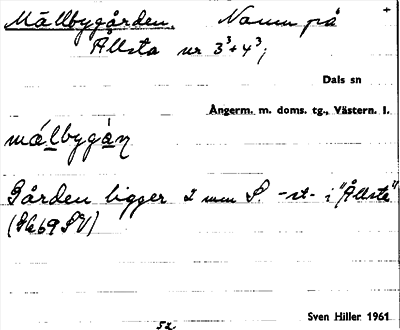 Mällbygården. Namn på +
Ållsta nr 3³+4³;
Dals sn
Ångerm. m. doms. tg., Västern. l.
målbygán
Gården ligger 2 mm S. -st- i "Ållsta"
(Gk69SV)
52 Sven Hiller 1961